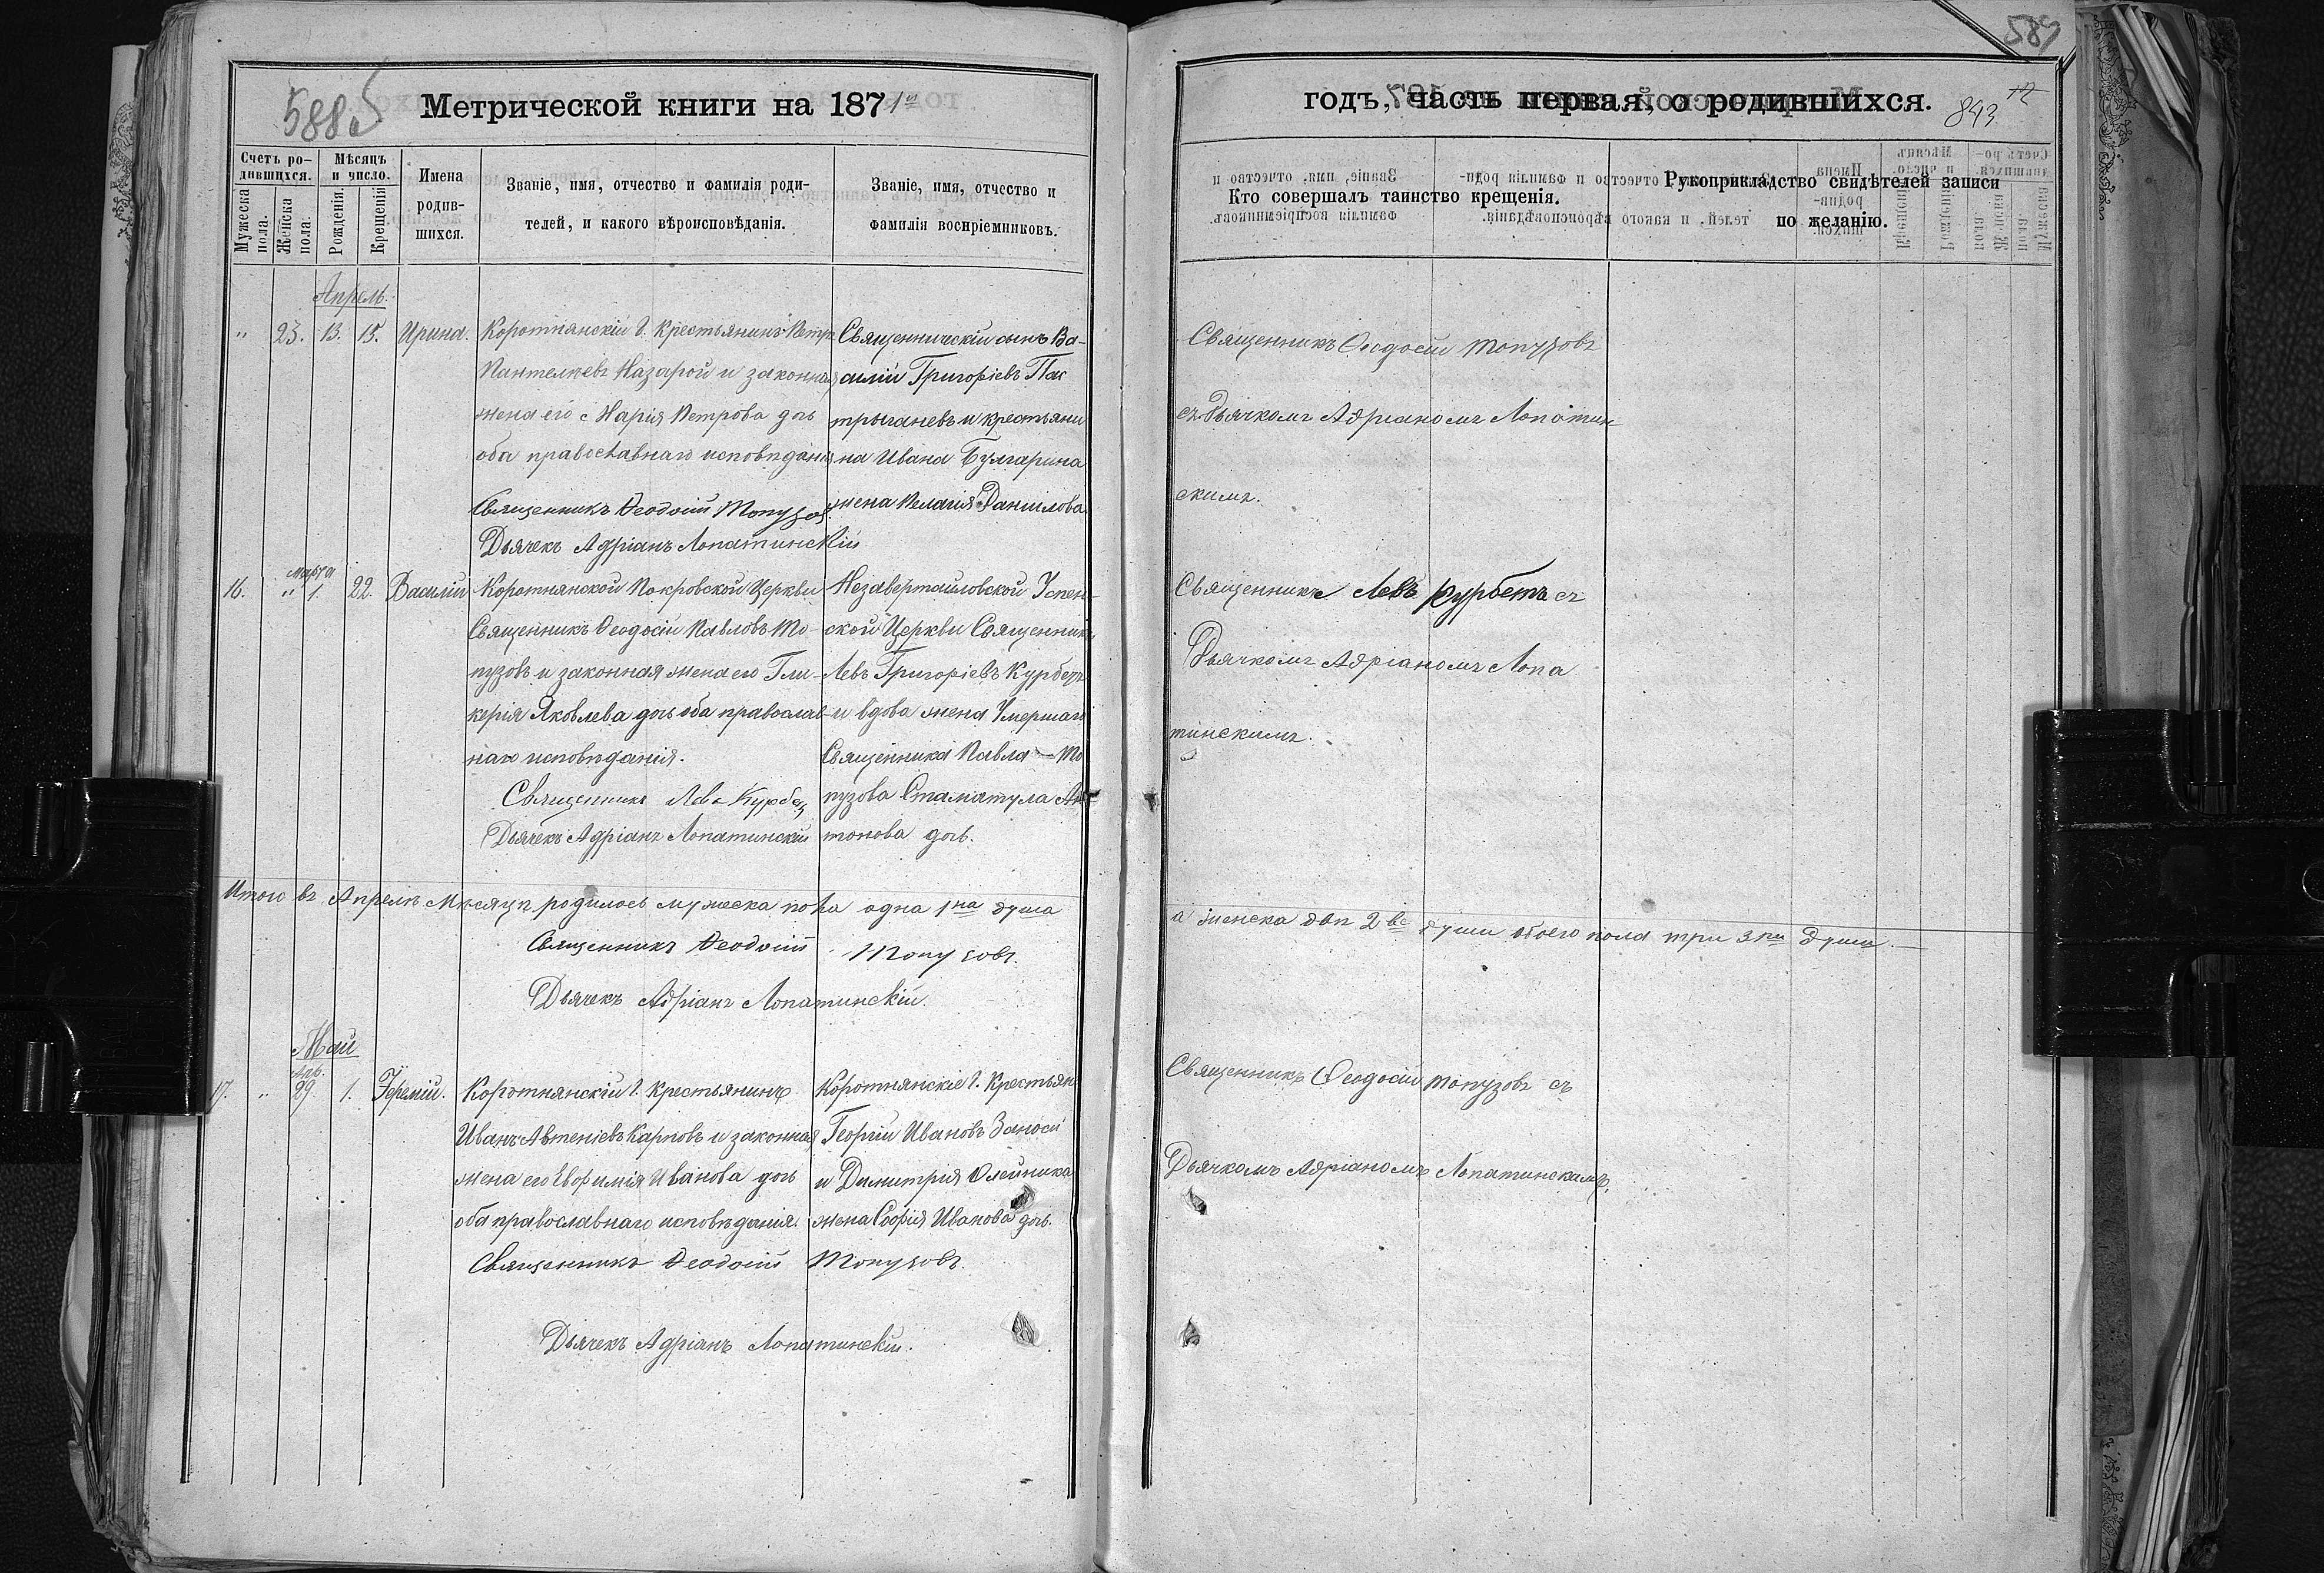 588 об
Метрической книги на 1871й
Счетъ родившихся.
Мужеска пола.
Женска пола.
Мѣсяцъ и число.
Рожденія.
Крещенія.
Имена родившихся.
Званіе, имя, отчество и фамилія роди-
телей, и какого вѣроисповѣданія.
Званіе, имя, отчество и
фамилія воспріемниковъ.
Апрель.
" 23. 13. 15. Ирина.
Коротнянскій Г. крестьянинъ Петръ
Пантелѣевъ Назарой и законная
жена его Марія Петрова дочь
оба православнаго исповѣданія
Священникъ Ѳеодосій Топузовъ
Дьячекъ Адріанъ Лопатинскій
Священническій сынъ Ва-
силій Григоріевъ
и крестьяни
на Ивана Булгарина
жена Пелагія Данилова
16. Марта " 1. 22. Василій
Коротнянской Покровской Церкви
Священникъ Ѳеодосій Павловъ То-
пузовъ и законная жена его Гли-
керія Яковлева дочь оба православ-
наго исповѣданія.
Священникъ Левъ Курбетъ
Дьячекъ Адріанъ Лопатинскій
Незавертайловской Успен-
ской Церкви Священникъ
Левъ Григоріевъ Курбетъ
и вдова жена Умершаго
Священника Павла То
пузова Стаматула Ан-
тонова дочь.
Итого въ Апрелѣ Мѣсяцѣ родилось мужеска пола одна 1на душа
Священникъ Ѳеодосій Топузовъ.
Дьячекъ Адріанъ Лопатинскій.
Май
17. " Апр. 29. 1. Іеремій.
Коротнянскій Г. крестьянинъ
Иванъ Автеніевъ Карповъ и законная
жена его Евфимія Иванова дочь
оба православнаго исповѣданія.
Священникъ Ѳеодосій Топузовъ.
Дьячекъ Адріанъ Лопатинскій.
Коротнянскіе Г. Крестьян.
Георгій Ивановъ Заносій
и Димитрія Олейника
жена Софія Иванова дочь.
589
годъ, часть первая, о родившихся.
843
12
Кто совершалъ таинство крещенія.
Рукоприкладство свидѣтелей записи
по желанію.
Священникъ Ѳеодосій Топузовъ
съ Дьячкомъ Адріаномъ Лопатин
скимъ.
Священникъ Левъ Курбетъ съ
Дьячкомъ Адріаномъ Лопа
тинскимъ.
а женска двѣ 2ве души обоего пола три 3ри души.
Священникъ Ѳеодосій Топузовъ съ
Дьячкомъ Адріаномъ Лопатинскимъ.